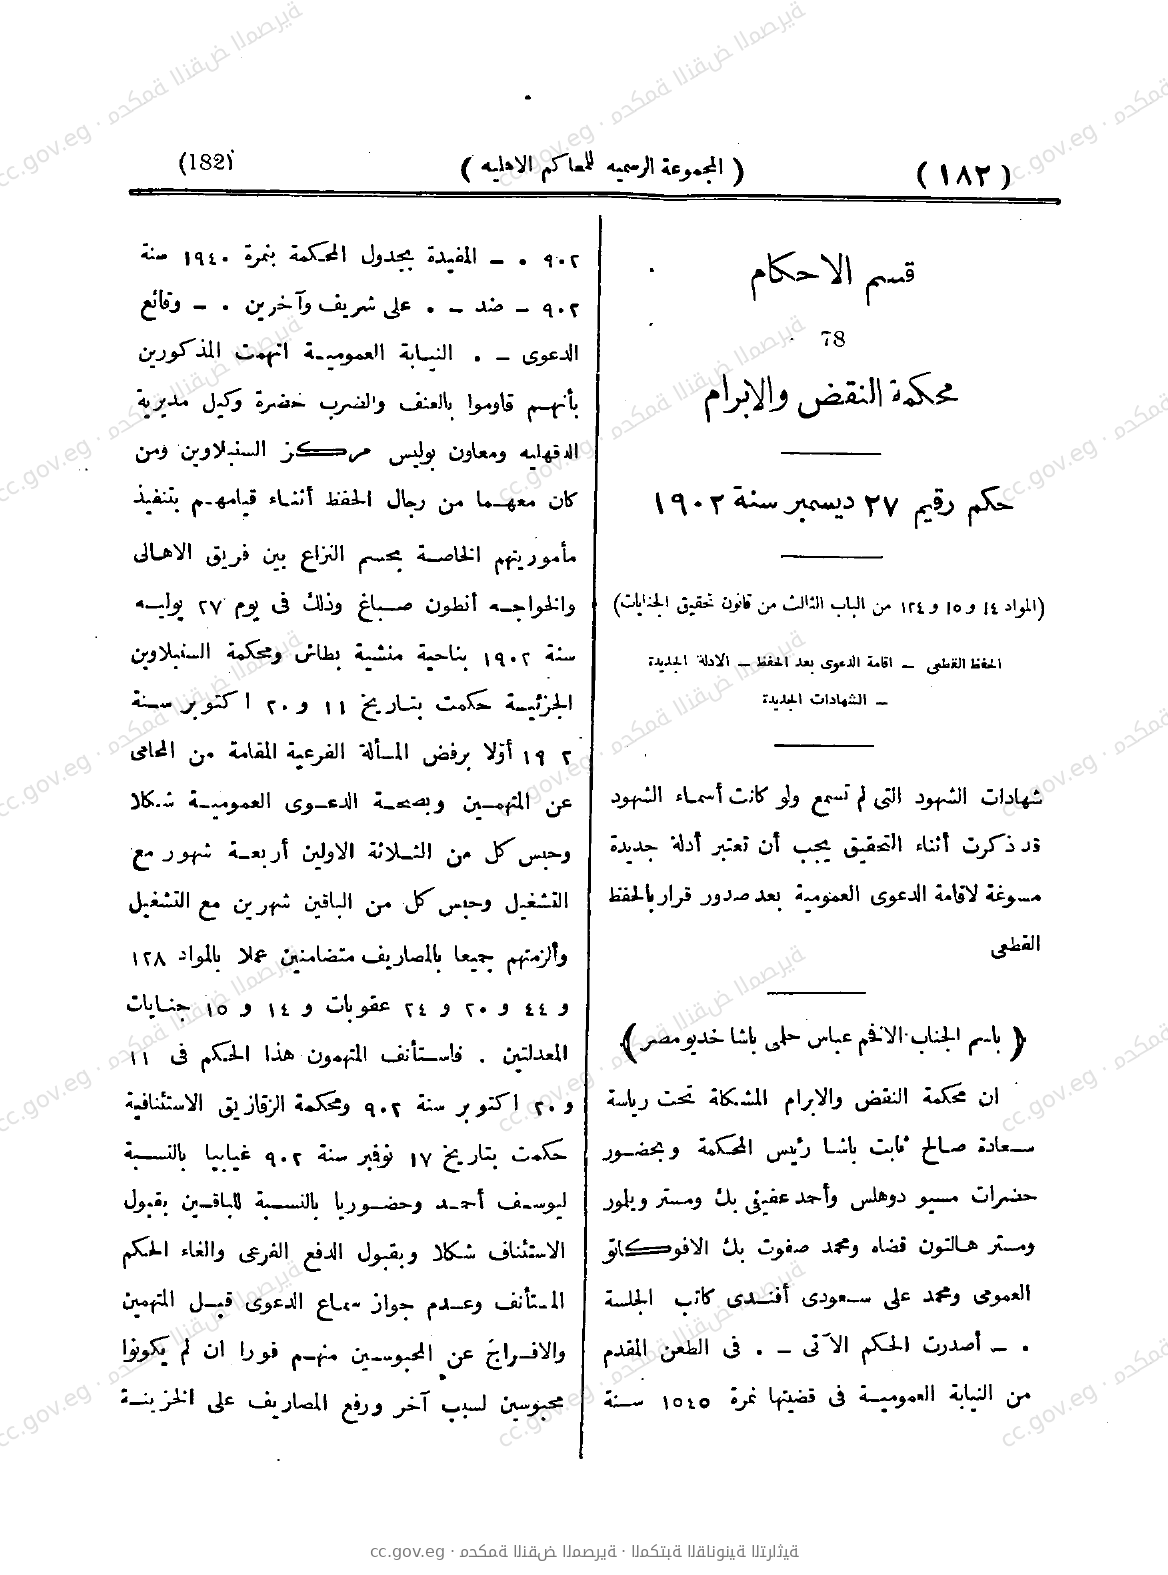 (١٨٢) ( المجموعة الرسميه للمحاكم الاهليه ) (182)
قسم الاحكام
78
محكمة النقض والابرام
حكم رقيم ٢٧ ديسمبر سنة ١٩٠٢
(المواد ١٤ و ١٥ و ١٢٤ من الباب الثالث من قانون تحقيق الجنايات)
الحفظ القطعى – اقامة الدعوى بعد الحفظ – الادلة الجديدة
– الشهادات الجديدة
شهادات الشهود التى لم تسمع ولو كانت أسماء الشهود
قد ذكرت أثناء التحقيق يجب أن تعتبر أدلة جديدة
مسوغة لاقامة الدعوى العمومية بعد صدور قرار بالحفظ
القطعى
( باسم الجناب الافخم عباس حلمى باشا خديو مصر )
ان محكمة النقض والابرام المشكلة تحت رياسة
سعادة صالح ثابت باشا رئيس المحكمة وبحضور
حضرات مسيو دوهلس وأحمد عفيفى بك ومستر ويلمور
ومستر هالتون قضاه ومحمد صفوت بك الافوكاتو
العمومى ومحمد على سعودى أفندى كاتب الجلسة
. – أصدرت الحكم الآتى – . فى الطعن المقدم
من النيابة العمومية فى قضيتها نمرة ١٥٤٥ سنة
٩٠٢ . – المقيدة بجدول المحكمة بنمرة ١٩٤٠ سنة
٩٠٢ – ضد – . على شريف وآخرين . – وقائع
الدعوى – . النيابة العمومية اتهمت المذكورين
بأنهم قاوموا بالعنف والضرب حضرة وكيل مديرية
الدقهليه ومعاون بوليس مركز السنبلاوين ومن
كان معهما من رجال الحفظ أثناء قيامهم بتنفيذ
مأموريتهم الخاصة بحسم النزاع بين فريق الاهالى
والخواجه أنطون صباغ وذلك فى يوم ٢٧ يوليه
سنة ١٩٠٢ بناحية منشية بطاش ومحكمة السنبلاوين
الجزئية حكمت بتاريخ ١١ و ٢٠ اكتوبر سنة
١٩٠٢ أولا برفض المسألة الفرعية المقامة من المحامى
عن المتهمين وبصحة الدعوى العمومية شكلا
وحبس كل من الثلاثة الاولين أربعة شهور مع
التشغيل وحبس كل من الباقين شهرين مع التشغيل
وألزمتهم جميعا بالمصاريف متضامنين عملا بالمواد ١٢٨
و ٤٤ و ٢٠ و ٢٤ عقوبات و ١٤ و ١٥ جنايات
المعدلتين . فاستأنف المتهمون هذا الحكم فى ١١
و ٢٠ اكتوبر سنة ٩٠٢ ومحكمة الزقازيق الاستئنافية
حكمت بتاريخ ١٧ نوفمبر سنة ٩٠٢ غيابيا بالنسبة
ليوسف أحمد وحضوريا بالنسبة للباقين بقبول
الاستئناف شكلا وبقبول الدفع الفرعى والغاء الحكم
المستأنف وعدم جواز سماع الدعوى قبل المتهمين
والافراج عن المحبوسين منهم فورا ان لم يكونوا
محبوسين لسبب آخر ورفع المصاريف على الخزينة
cc.gov.eg · محكمة النقض المصرية · المكتبة القانونية التراثية